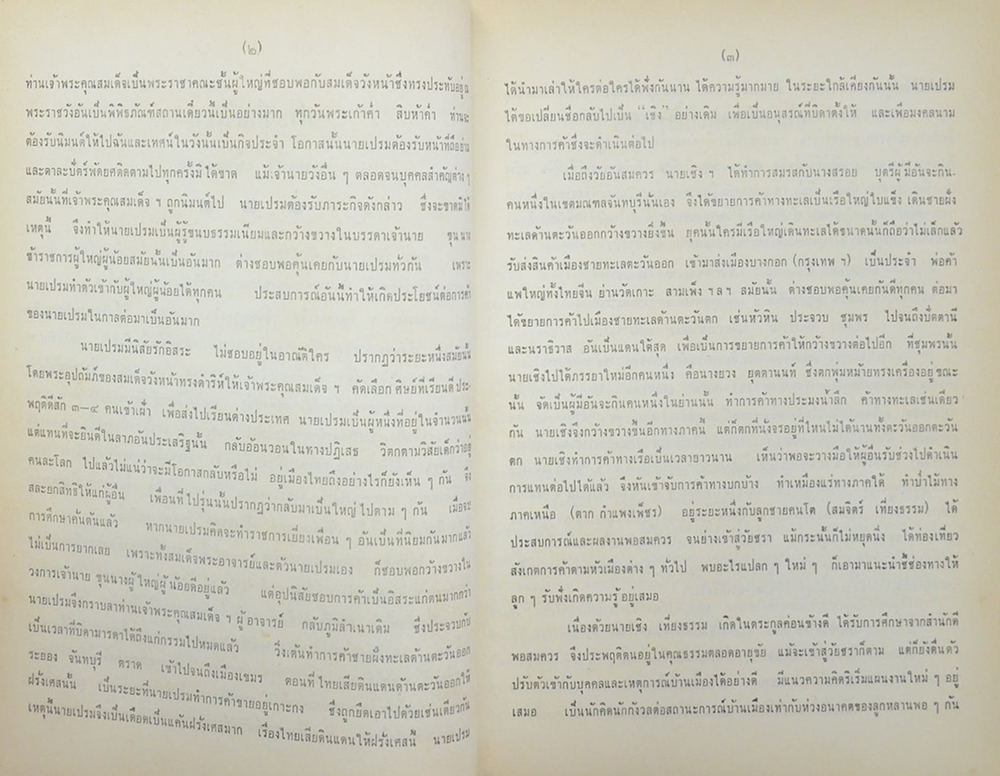 (๒)
ท่านเจ้าพระคุณสมเด็จเป็นพระราชาคณะชั้นผู้ใหญ่ที่ชอบพอกับสมเด็จวังหน้าซึ่งทรงประทับอยู่ณ
พระราชวังอันเป็นพิพิธภัณฑ์สถานเดี๋ยวนี้เป็นอย่างมาก ทุกวันพระเก้าค่ำ สิบห้าค่ำ ท่านจะ
ต้องรับนิมนต์ให้ไปฉันและเทศน์ในวังนั้นเป็นกิจประจำ โอกาสนั้นนายเปรมต้องรับหน้าที่ถือย่าม
และตาละปัตร์พัดยศติดตามไปทุกครั้งมิได้ขาด แม้เจ้านายวังอื่น ๆ ตลอดจนบุคคลสำคัญต่าง ๆ
สมัยนั้นที่เจ้าพระคุณสมเด็จ ฯ ถูกนิมนต์ไป นายเปรมต้องรับภาระกิจดังกล่าว ซึ่งจะขาดมิได้
เหตุนี้ จึงทำให้นายเปรมเป็นผู้รู้ขนบธรรมเนียมและกว้างขวางในบรรดาเจ้านาย ขุนนาง
ข้าราชการผู้ใหญ่ผู้น้อยสมัยนั้นเป็นอันมาก ต่างชอบพอคุ้นเคยกับนายเปรมทั่วกัน เพราะ
นายเปรมทำตัวเข้ากับผู้ใหญ่ผู้น้อยได้ทุกคน ประสบการณ์อันนี้ทำให้เกิดประโยชน์ต่อการค้า
ของนายเปรมในกาลต่อมาเป็นอันมาก
นายเปรมมีนิสัยรักอิสระ ไม่ชอบอยู่ในอาณัติใคร ปรากฏว่าระยะหนึ่งสมัยนั้น
โดยพระอุปถัมภ์ของสมเด็จวังหน้าทรงดำริห์ให้เจ้าพระคุณสมเด็จ ฯ คัดเลือกศิษย์ที่เรียนดีประ-
พฤติดีสัก ๓—๔ คนเข้าเฝ้า เพื่อส่งไปเรียนต่างประเทศ นายเปรมเป็นผู้หนึ่งที่อยู่ในจำนวนนั้น
แต่แทนที่จะยินดีในลาภอันประเสริฐนั้น กลับอ้อนวอนในทางปฏิเสธ วิตกตามวิสัยเด็กว่าอยู่
คนละโลก ไปแล้วไม่แน่ว่าจะมีโอกาสกลับหรือไม่ อยู่เมืองไทยถึงอย่างไรก็ยังเห็น ๆ กัน จึง
สละยกสิทธิให้แก่ผู้อื่น เพื่อนที่ไปรุ่นนั้นปรากฏว่ากลับมาเป็นใหญ่ไปตาม ๆ กัน เมื่อจบ
การศึกษาค้นต้นแล้ว หากนายเปรมคิดจะทำราชการเยี่ยงเพื่อน ๆ อันเป็นที่นิยมกันมากแล้ว
ไม่เป็นการยากเลย เพราะทั้งสมเด็จพระอาจารย์และตัวนายเปรมเอง ก็ชอบพอกว้างขวางใน
วงการเจ้านาย ขุนนางผู้ใหญ่ผู้น้อยดีอยู่แล้ว แต่อุปนิสัยชอบการค้าเป็นอิสระแก่ตนมากกว่า
นายเปรมจึงกราบลาท่านเจ้าพระคุณสมเด็จ ฯ ผู้อาจารย์ กลับภูมิลำเนาเดิม ซึ่งประจวบกับ
เป็นเวลาที่บิดามารดาได้ถึงแก่กรรมไปหมดแล้ว วิ่งเต้นทำการค้าชายฝั่งทะเลด้านตะวันออก
ระยอง จันทบุรี ตราด เข้าไปจนถึงเมืองเขมร ตอนที่ไทยเสียดินแดนด้านตะวันออกให้
ฝรั่งเศสนั้น เป็นระยะที่นายเปรมทำการค้าขายอยู่เกาะกง ซึ่งถูกยึดเอาไปด้วยเช่นเดียวกัน
เหตุนี้นายเปรมจึงเป็นเดือดเป็นแค้นฝรั่งเศสมาก เรื่องไทยเสียดินแดนให้ฝรั่งเศสนี้ นายเปรม
(๓)
ได้นำมาเล่าให้ใครต่อใครได้ฟังกันนาน ได้ความรู้มากมาย ในระยะใกล้เคียงกันนั้น นายเปรม
ได้ขอเปลี่ยนชื่อกลับไปเป็น "เชิง" อย่างเดิม เพื่อเป็นอนุสรณ์ที่บิดาตั้งให้ และเพื่อมงคลนาม
ในทางการค้าซึ่งจะดำเนินต่อไป
เมื่อถึงวัยอันสมควร นายเชิง ฯ ได้ทำการสมรสกับนางสรอย บุตรีผู้มีอันจะกิน-
คนหนึ่งในเขตมณฑลจันทบุรีนั้นเอง จึงได้ขยายการค้าทางทะเลเป็นเรือใหญ่ใบแข็ง เดินชายฝั่ง
ทะเลด้านตะวันออกกว้างขวางยิ่งขึ้น ยุคนั้นใครมีเรือใหญ่เดินทะเลได้ขนาดนั้นก็ถือว่าไม่เล็กแล้ว
รับส่งสินค้าเมืองชายทะเลตะวันออก เข้ามาส่งเมืองบางกอก (กรุงเทพ ฯ) เป็นประจำ พ่อค้า
แพใหญ่ทั้งไทยจีน ย่านวัดเกาะ สามเพ็ง ฯลฯ สมัยนั้น ต่างชอบพอคุ้นเคยกันดีทุกคน ต่อมา
ได้ขยายการค้าไปเมืองชายทะเลด้านตะวันตก เช่นหัวหิน ประจวบ ชุมพร ไปจนถึงปัตตานี
และนราธิวาส อันเป็นแดนใต้สุด เพื่อเป็นการขยายการค้าให้กว้างขวางต่อไปอีก ที่ชุมพรนั้น
นายเชิงไปได้ภรรยาใหม่อีกคนหนึ่ง คือนางยวง ยุตตานนท์ ซึ่งตกพุ่มหม้ายทรงเครื่องอยู่ขณะ
นั้น จัดเป็นผู้มีอันจะกินคนหนึ่งในย่านนั้น ทำการค้าทางประมงน้ำลึก ค้าทางทะเลเช่นเดียว
กัน นายเชิงจึงกว้างขวางขึ้นอีกทางภาคนี้ แต่ก็ตกที่นั่งจรอยู่ที่ไหนไม่ได้นานทั้งตะวันออกตะวัน
ตก นายเชิงทำการค้าทางเรือเป็นเวลายาวนาน เห็นว่าพอจะวางมือให้ผู้อื่นรับช่วงไปดำเนิน
การแทนต่อไปได้แล้ว จึงหันเข้าจับการค้าทางบกบ้าง ทำเหมืองแร่ทางภาคใต้ ทำป่าไม้ทาง
ภาคเหนือ (ตาก กำแพงเพ็ชร) อยู่ระยะหนึ่งกับลูกชายคนโต (สมจิตร์ เที่ยงธรรม) ได้
ประสบการณ์และผลงานพอสมควร จนย่างเข้าสู่วัยชรา แม้กระนั้นก็ไม่หยุดนิ่ง ได้ท่องเที่ยว
สังเกตการค้าตามหัวเมืองต่าง ๆ ทั่วไป พบอะไรแปลก ๆ ใหม่ ๆ ก็เอามาแนะนำชี้ช่องทางให้
ลูก ๆ รับฟังเกิดความรู้อยู่เสมอ
เนื่องด้วยนายเชิง เที่ยงธรรม เกิดในตระกูลค่อนข้างดี ได้รับการศึกษาจากสำนักดี
พอสมควร จึงประพฤติตนอยู่ในคุณธรรมตลอดอายุขัย แม้จะเข้าสู่วัยชราก็ตาม แต่ก็ยังตื่นตัว
ปรับตัวเข้ากับบุคคลและเหตุการณ์บ้านเมืองได้อย่างดี มีแนวความคิดริเริ่มแผนงานใหม่ ๆ อยู่
เสมอ เป็นนักคิดนักกังวลต่อสถานะการณ์บ้านเมืองเท่ากับห่วงอนาคตของลูกหลานพอ ๆ กัน